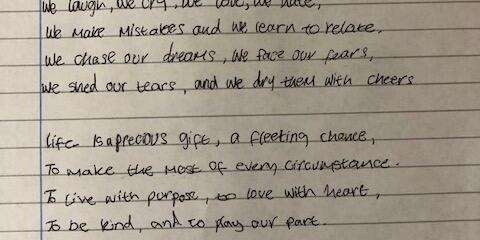 We laugh, we cry, we love, we hate,
We make mistakes and we learn to relate.
We chase our dreams, we face our fears,
We shed our tears, and we dry them with cheers
Life is a precous gift, a fleeting chance,
To make the most of every circumstance.
To live with purpose, to love with heart,
To be kind, and to play our part.